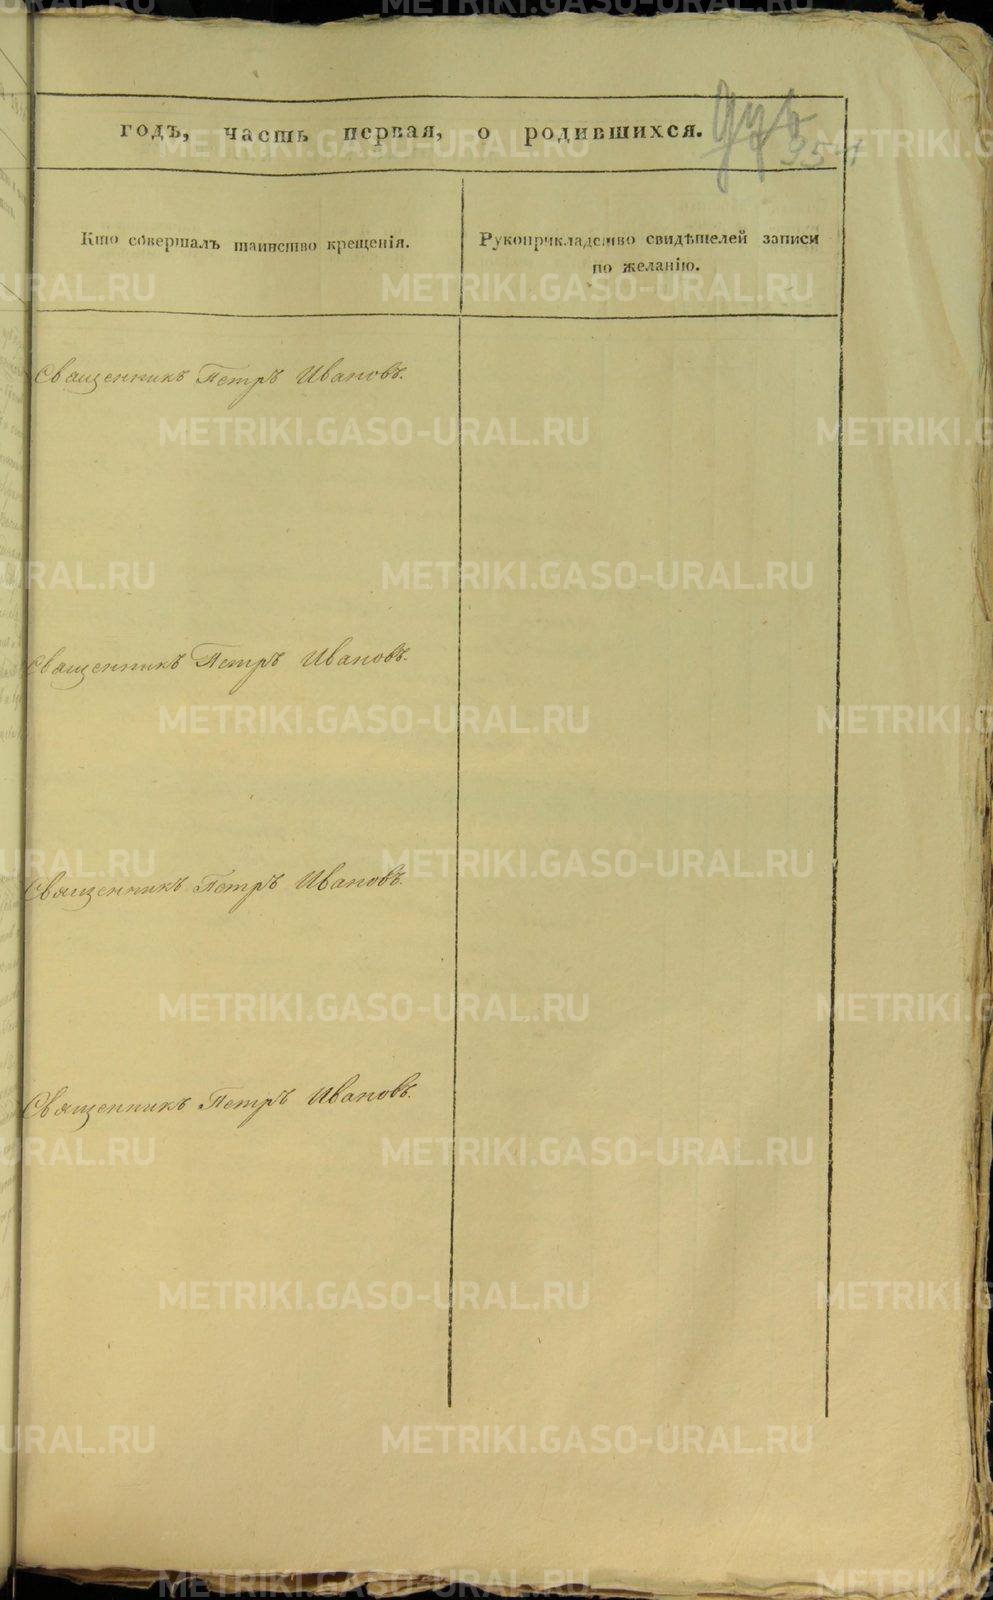 годъ, часть первая, о родившихся.
354
Кто совершалъ таинство крещенія.
Рукоприкладство свидѣтелей записи
по желанію.
Священникъ Петръ Ивановъ.
Священникъ Петръ Ивановъ.
Священникъ Петръ Ивановъ.
Священникъ Петръ Ивановъ.
METRIKI.GASO-URAL.RU